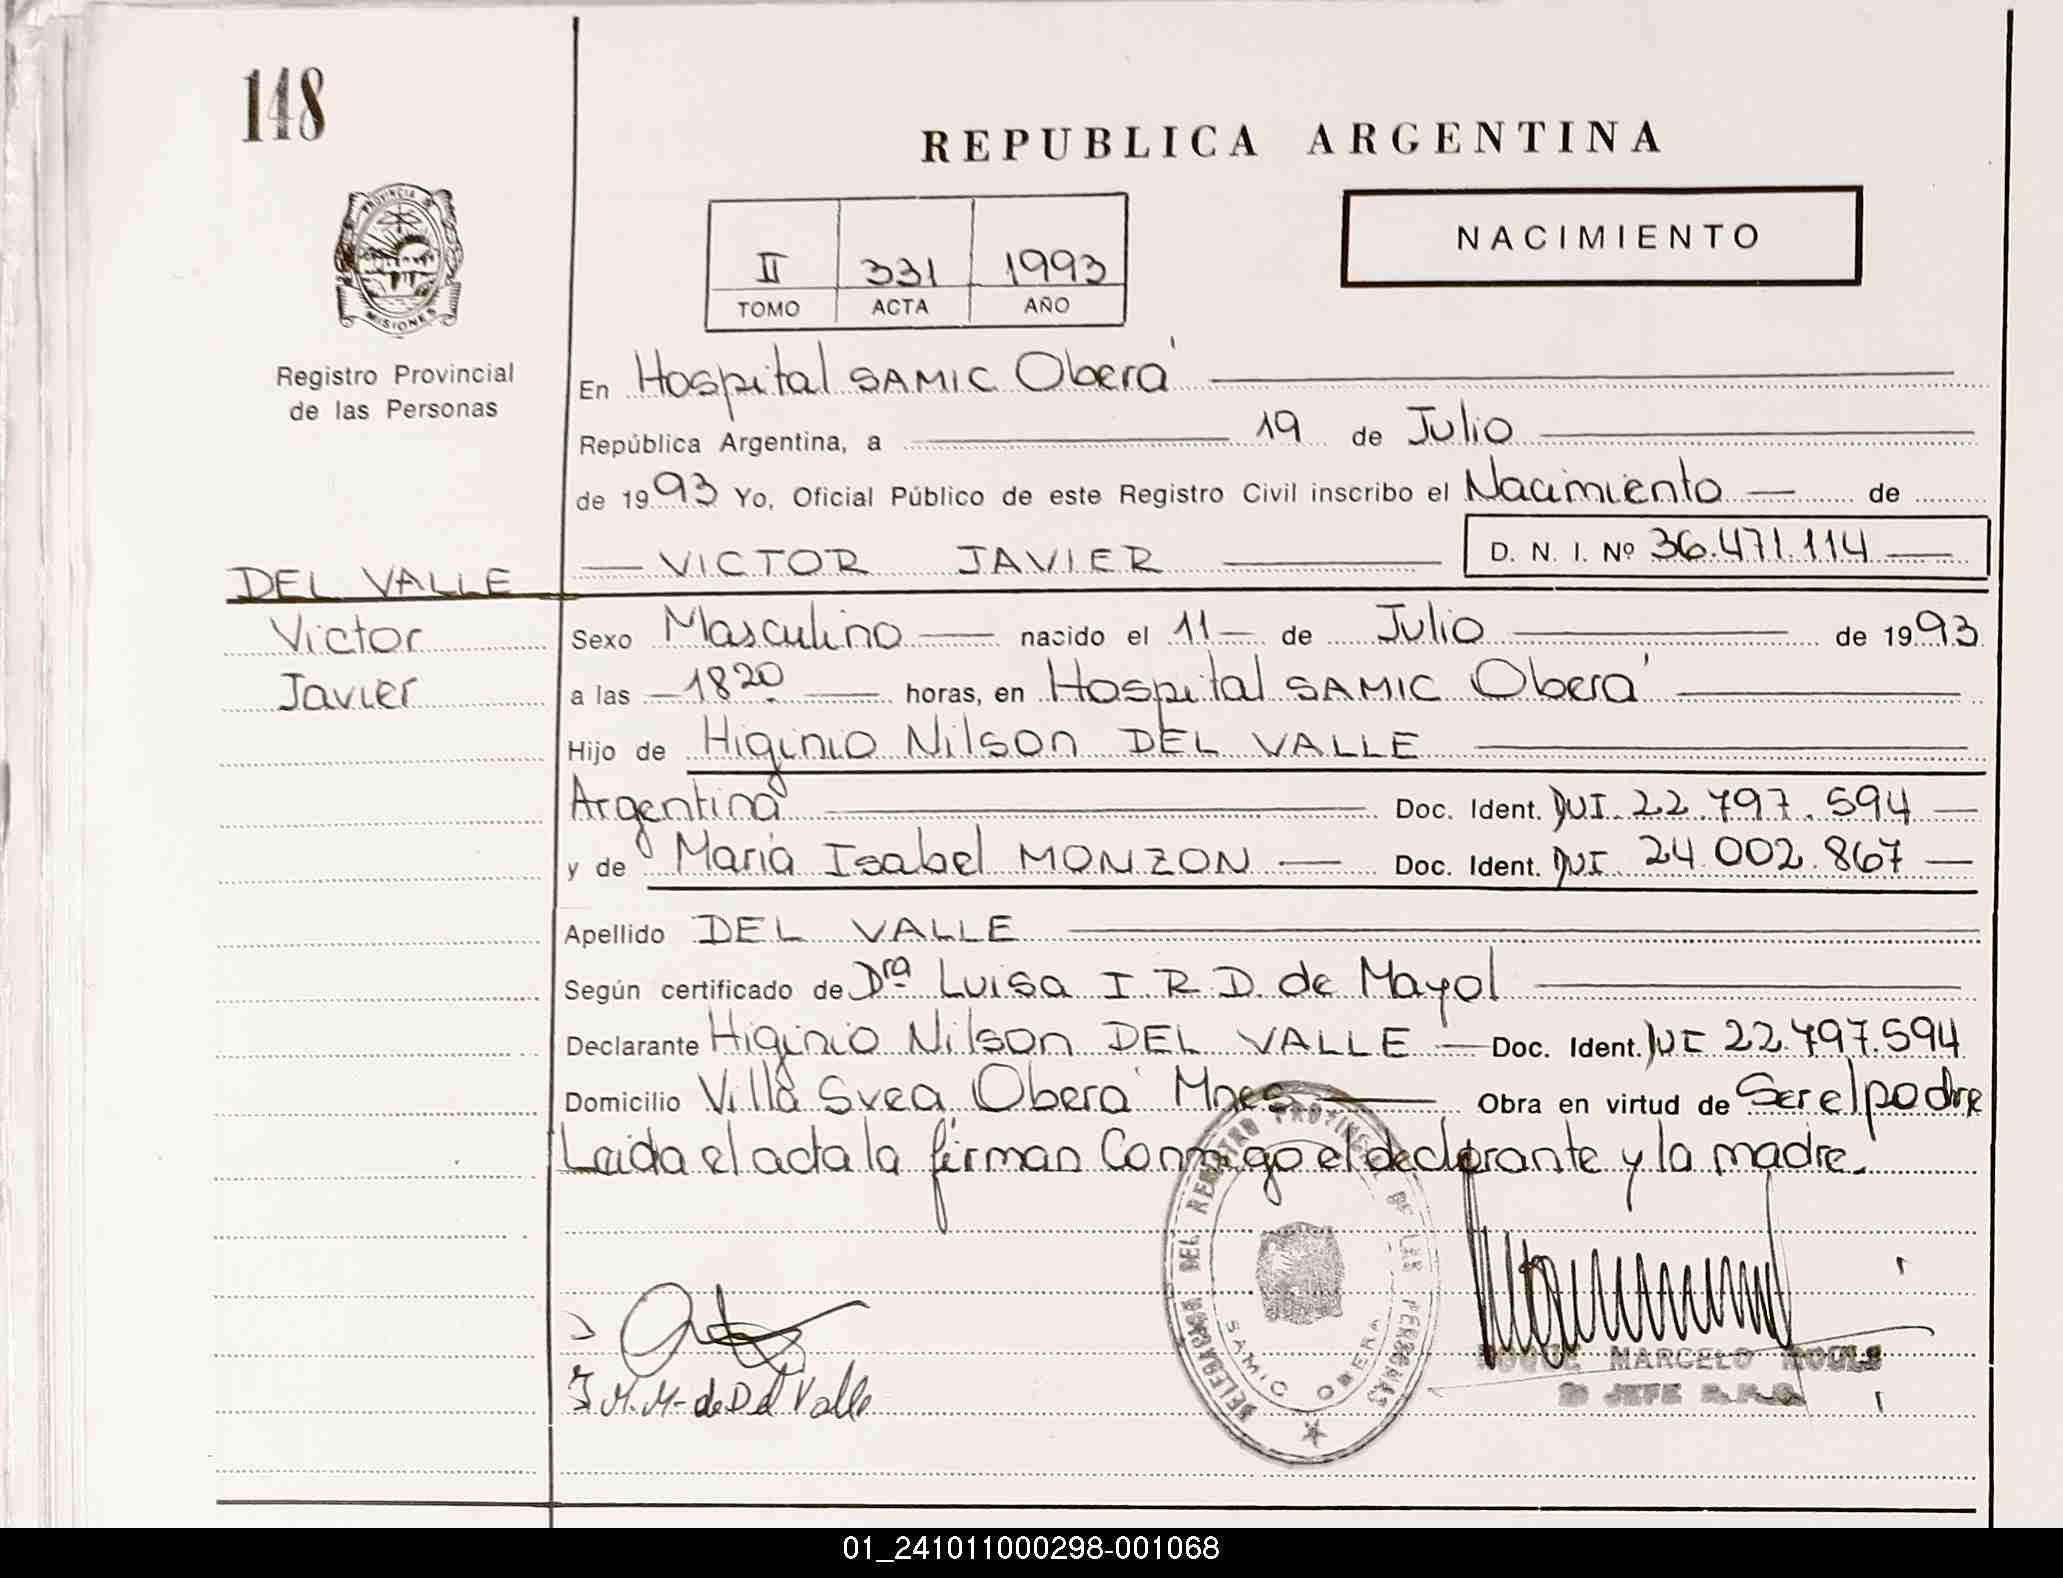 148
REPUBLICA ARGENTINA
PROVINCIA DE
MISIONES
NACIMIENTO
II 331 1993
TOMO ACTA AÑO
Registro Provincial
de las Personas
En Hospital SAMIC Oberá
República Argentina, a 19 de Julio
de 1993 Yo, Oficial Público de este Registro Civil inscribo el Nacimiento de
VICTOR JAVIER D. N. I. Nº 36.471.114
DEL VALLE
Victor
Javier
Sexo Masculino nacido el 11 de Julio de 1993
a las 18 20 horas, en Hospital SAMIC Oberá
Hijo de Higinio Nilson DEL VALLE
Argentina Doc. Ident. 22.797.594
y de Maria Isabel MONZON Doc. Ident. 24.002.867
Apellido DEL VALLE
Según certificado de Dra Luisa I. R. D. de Mayol
Declarante Higinio Nilson DEL VALLE Doc. Ident. 22.797.594
Domicilio Villa Svea Oberá Mnes Obra en virtud de Ser el padre
Leida el acta la firman Conmigo el declarante y la madre.
DELEGACION DEL REGISTRO PROVINCIAL DE LAS PERSONAS
SAMIC OBERA
M. M. de Del Valle
MARCELO
JEFE
01_241011000298-001068